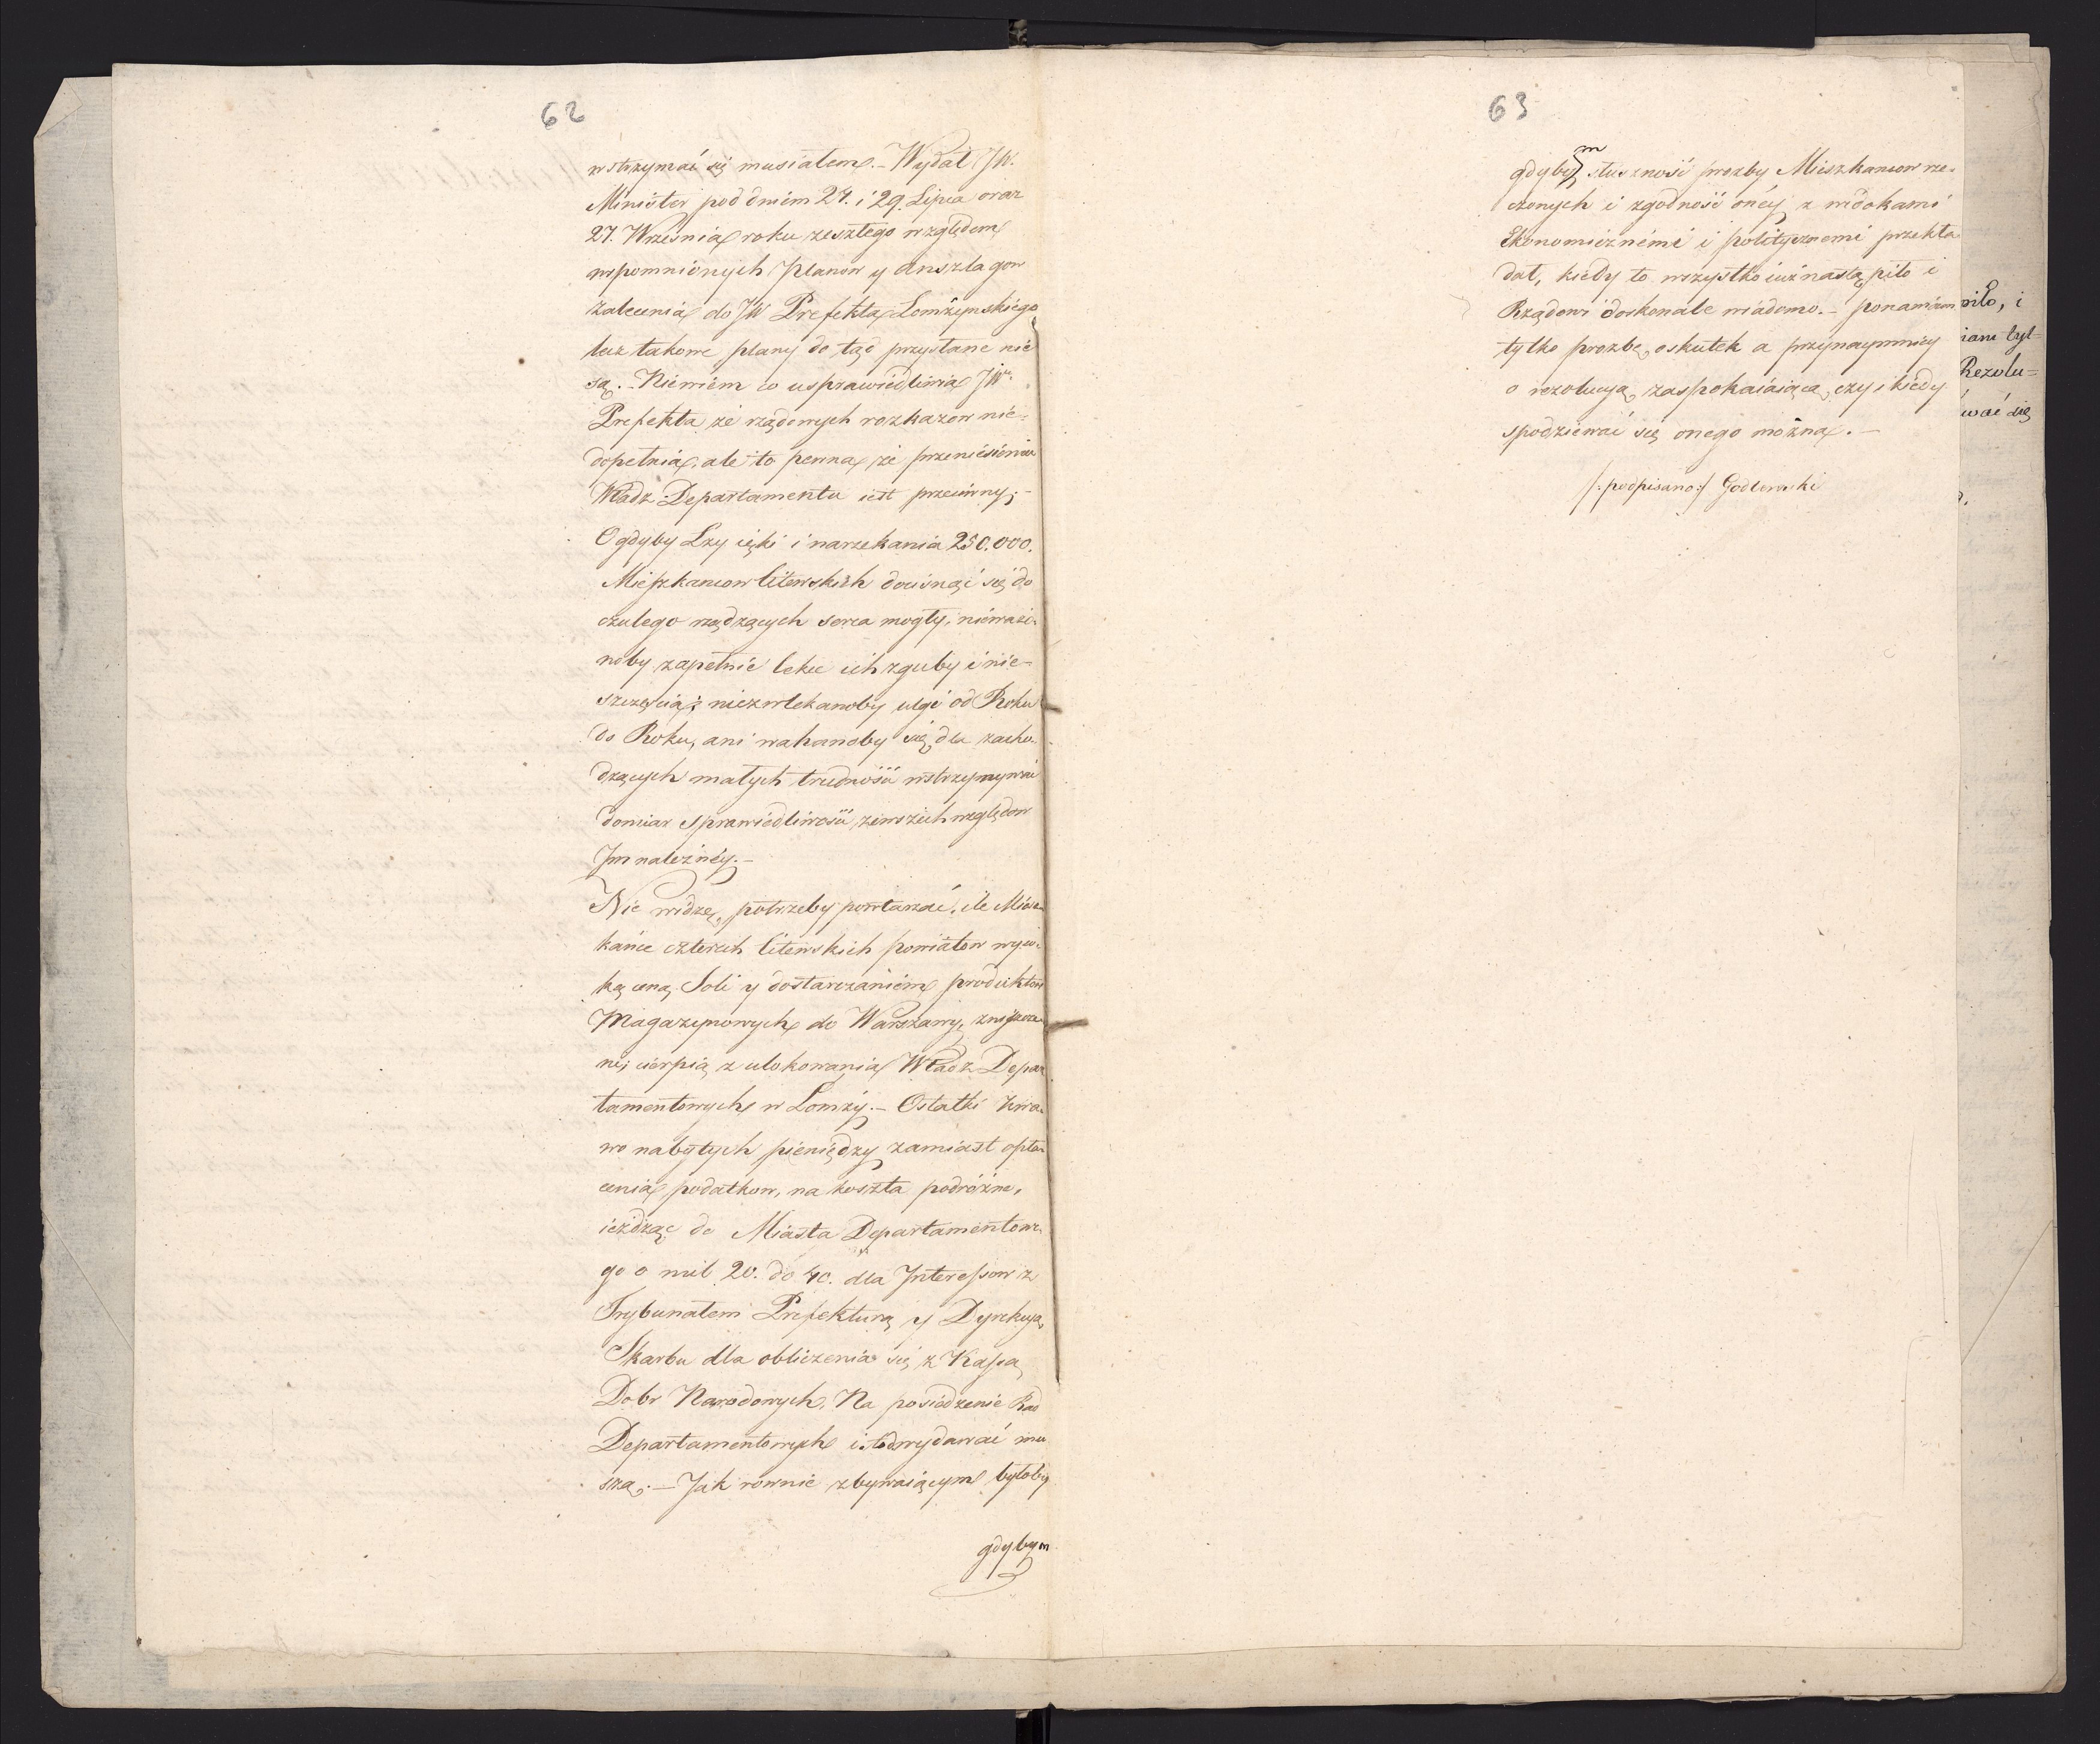 62
wstrzymać się musiałem. – Wydał JW.
Minister pod dniem 24. i 29. Lipca oraz
27. Września roku zeszłego względem
wspomnionych Planow y Anszlagow
Zalecenia do JW Prefekta Łomżynskiégo
lecz takowe plany do tąd przysłane nie
są. – Niewiem co usprawiedliwia JW.
Prefekta że rządowych rozkazow nie-
dopełnia, ale to pewna że przeniésieniu
Władz Departamentu iest przeciwny; –
O gdyby Łzy ięki i narzekania 250.000.
Mieszkancow litewskich docisnąć się do
czułego rządzących serca mogły, nieważo-
noby zapełnie lekce ich zguby i nie-
szczęścia; niezwlekanoby ulgi od Roku
do Roku, ani wahanoby się dla zacho-
dzących małych trudnosci wstrzymywać
domiar sprawiedliwosci zewszech względow
Im należnéy. –
Nie widzę potrzeby powtarzać, ile Miesz-
kance czterech litewskich powiatow wyso-
ką ceną Soli y dostarczaniem produktow
Magazynowych do Warszawy, zniszcze-
ni; cierpią z ulokowania Władz Depar
tamentowych w Łomży. – Ostatki krwa-
wo nabytych pieniędzy zamiast opła-
cenia podatkow, na koszta podróżne,
ieżdżąc do Miasta Departamentowe-
go o mil 20. do 40. dla Interessow z
Trybunałem Prefekturą y Dyrekcyą
Skarbu dla obliczenia się z Kassą
Dobr Narodowych. Na posiedzenie Rad
Departamentowych i Sądwydawać mu
szą. – Jak rownie zbywaiącym byłoby
gdybym
63
gdybym słuszność prozby Mieszkancow rze-
czonych i zgodność onéy z widokami
Ekonomicznémi i politycznemi przekła
dał, kiedy to wszystko iuż nastąpiło i
Rządowi doskonale wiadomo. – ponawiam
tylko prozbę, o skutek a przynaymniéy
o rezolucyą zaspokaiaiącą, czy i kiédy
spodziéwać się onego można. –
/:podpisano:/ Godlewski
piło, i
iam tyl-
Rezolu=
wać się